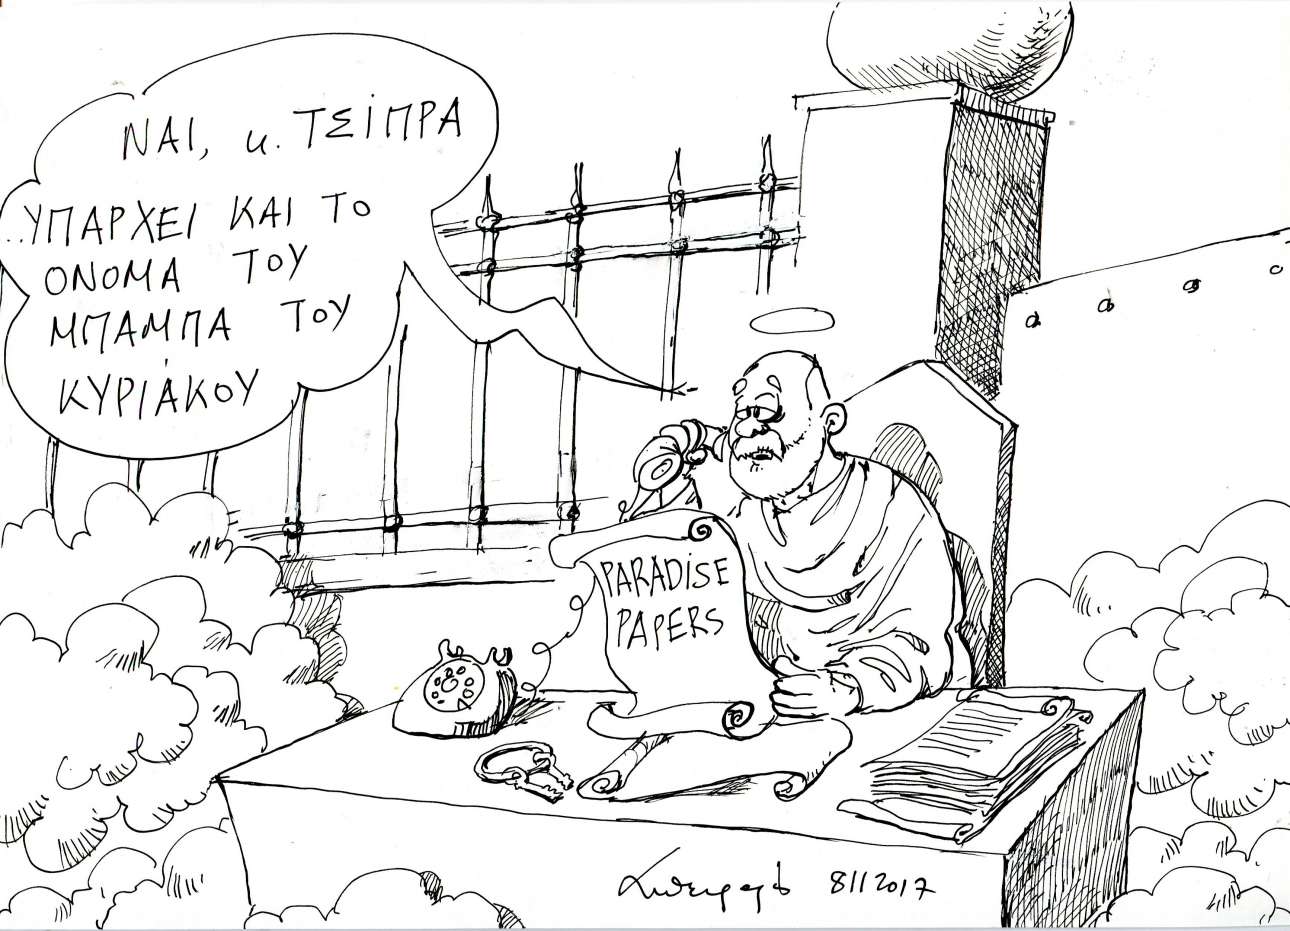 ΝΑΙ, κ. ΤΣΙΠΡΑ
..ΥΠΑΡΧΕΙ ΚΑΙ ΤΟ
ΟΝΟΜΑ ΤΟΥ
ΜΠΑΜΠΑ ΤΟΥ
ΚΥΡΙΆΚΟΥ
PARADiSE
PAPERS
8112017